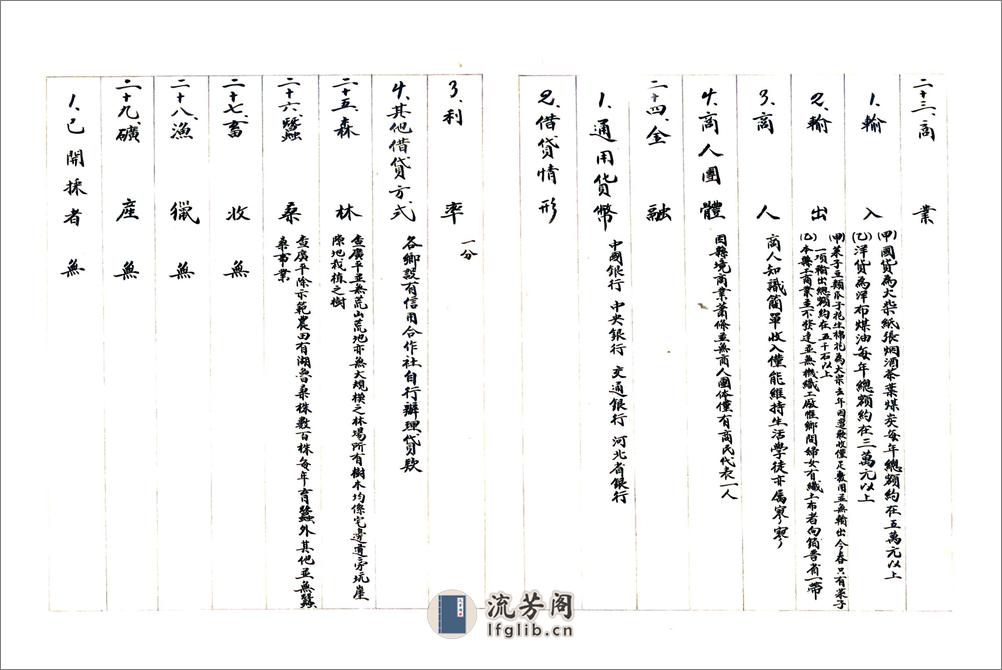 二十三、商業
1、輸入 (甲)國貨為大柴紙張烟酒茶葉煤炭每年總額約在五萬元以上
(乙)洋貨為洋布煤油每年總額約在三萬元以上
2、輸出 (甲)菜子豆類瓜子花生棉花為大宗去年因遭歉收僅足敷用並無輸出今春只有菜子
一項輸出總額約在五千石以上
(乙)本縣工商業並不發達並無機織工廠惟鄉間婦女有織土布者向簡晋省一帶
3、商人 商人知識簡單收入僅能維持生活學徒亦屬寥寥
4、商人團體 因縣境商業蕭條並無商人團体僅有商民代表一人
二十四、金融
1、通用貨幣 中國銀行 中央銀行 交通銀行 河北省銀行
2、借貸情形
3、利率 一分
4、其他借貸方式 各鄉設有信用合作社自行辦理貸款
二十五、森林 查廣平並無荒山荒地亦無大規模之林場所有樹木均係宅邊道旁坑崖
隙地栽植之樹
二十六、蠶桑 查廣平除示範農田有湖魯桑株數百株每年育蠶外其他並無蠶
桑事業
二十七、畜收 無
二十八、漁獵 無
二十九、礦產 無
1、已開採者 無
流芳阁
lfglib.cn